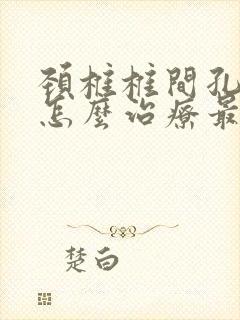 頚椎椎間孔
怎麼治療最
楚白